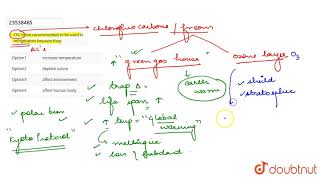 23538465
CFCs are not recommended to be used in
refrigerators because they
AC's
Option1 increase temperature
Option2 deplete ozone
Option3 affect environment
Option4 affect human body
chlorofluorocarbons / freon
green gas house
ozone layer O3
trap
life span ↑
↑ temp = "global
warming"
earth
warm
shield
stratosphere
polar bear
"Kyoto Protocol"
melting ice
loss of habitat
doubtnut